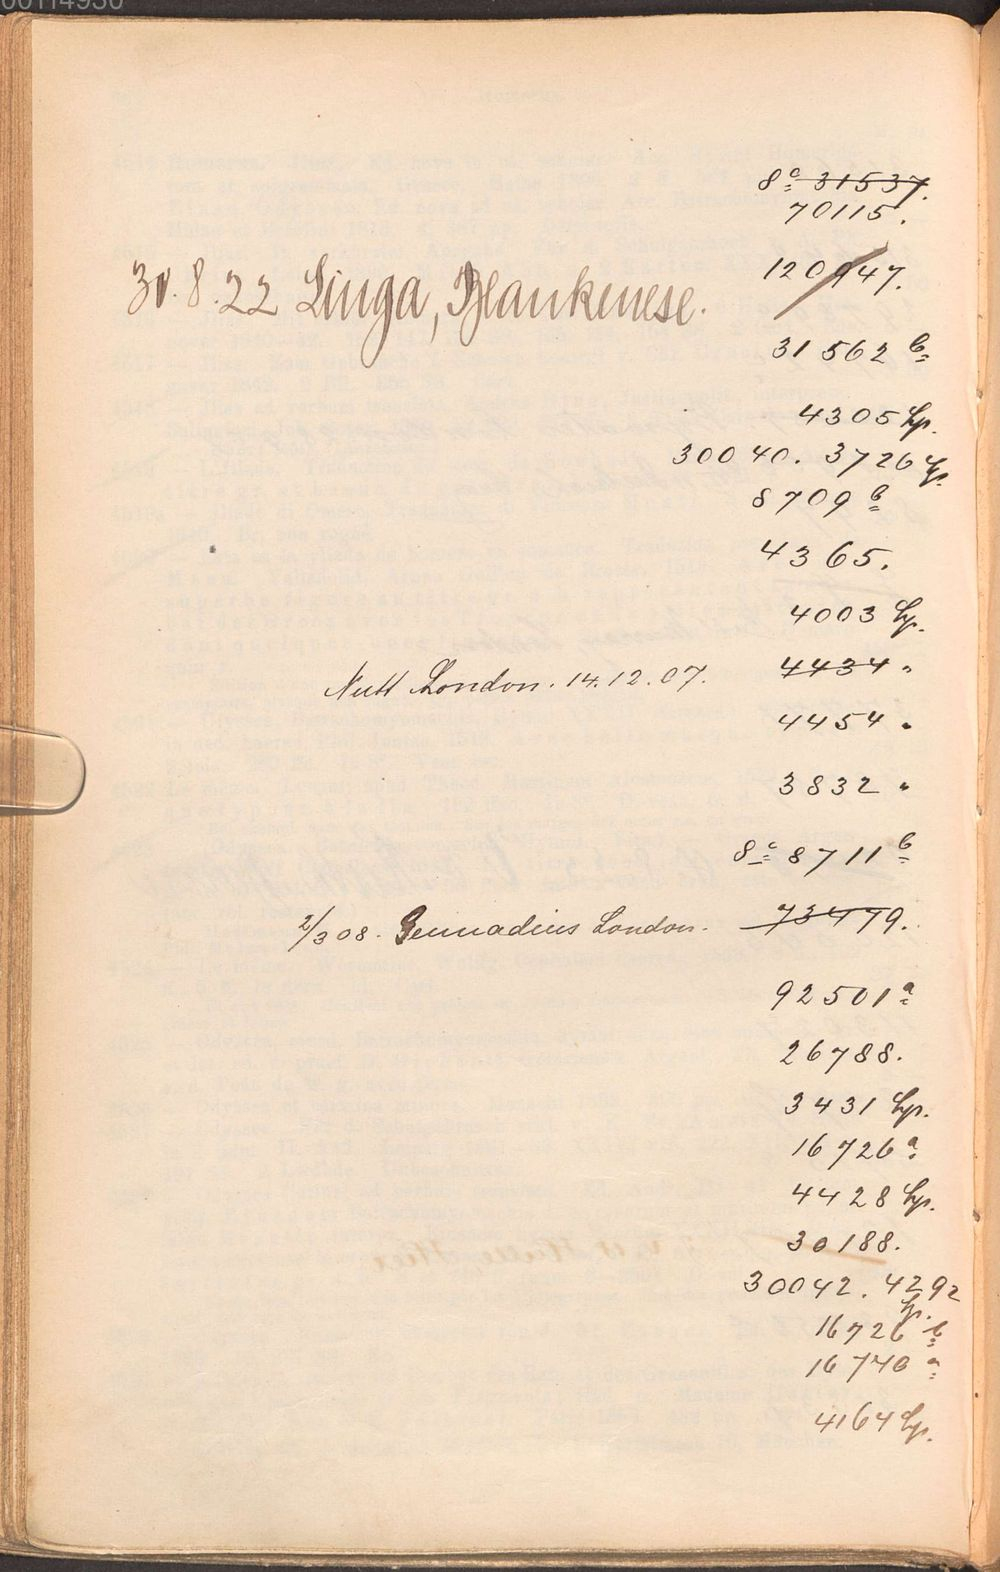 8° 31537.
70115.
30.8.22 Linga, Blankenese. 120947.
31562 b
4305 Lp.
30040. 3726 Lp.
8709 b
4365.
4003 Lp.
Nutt London. 14.12.07. 4434 "
4454 "
3832 "
8° 8711 b
2/3 08. Gennadius London. 73479.
92501 a
26788.
3431 Lp.
16726 a
4428 Lp.
30188.
30042. 4292
Lp.
16726 b
16740 a
4164 Lp.